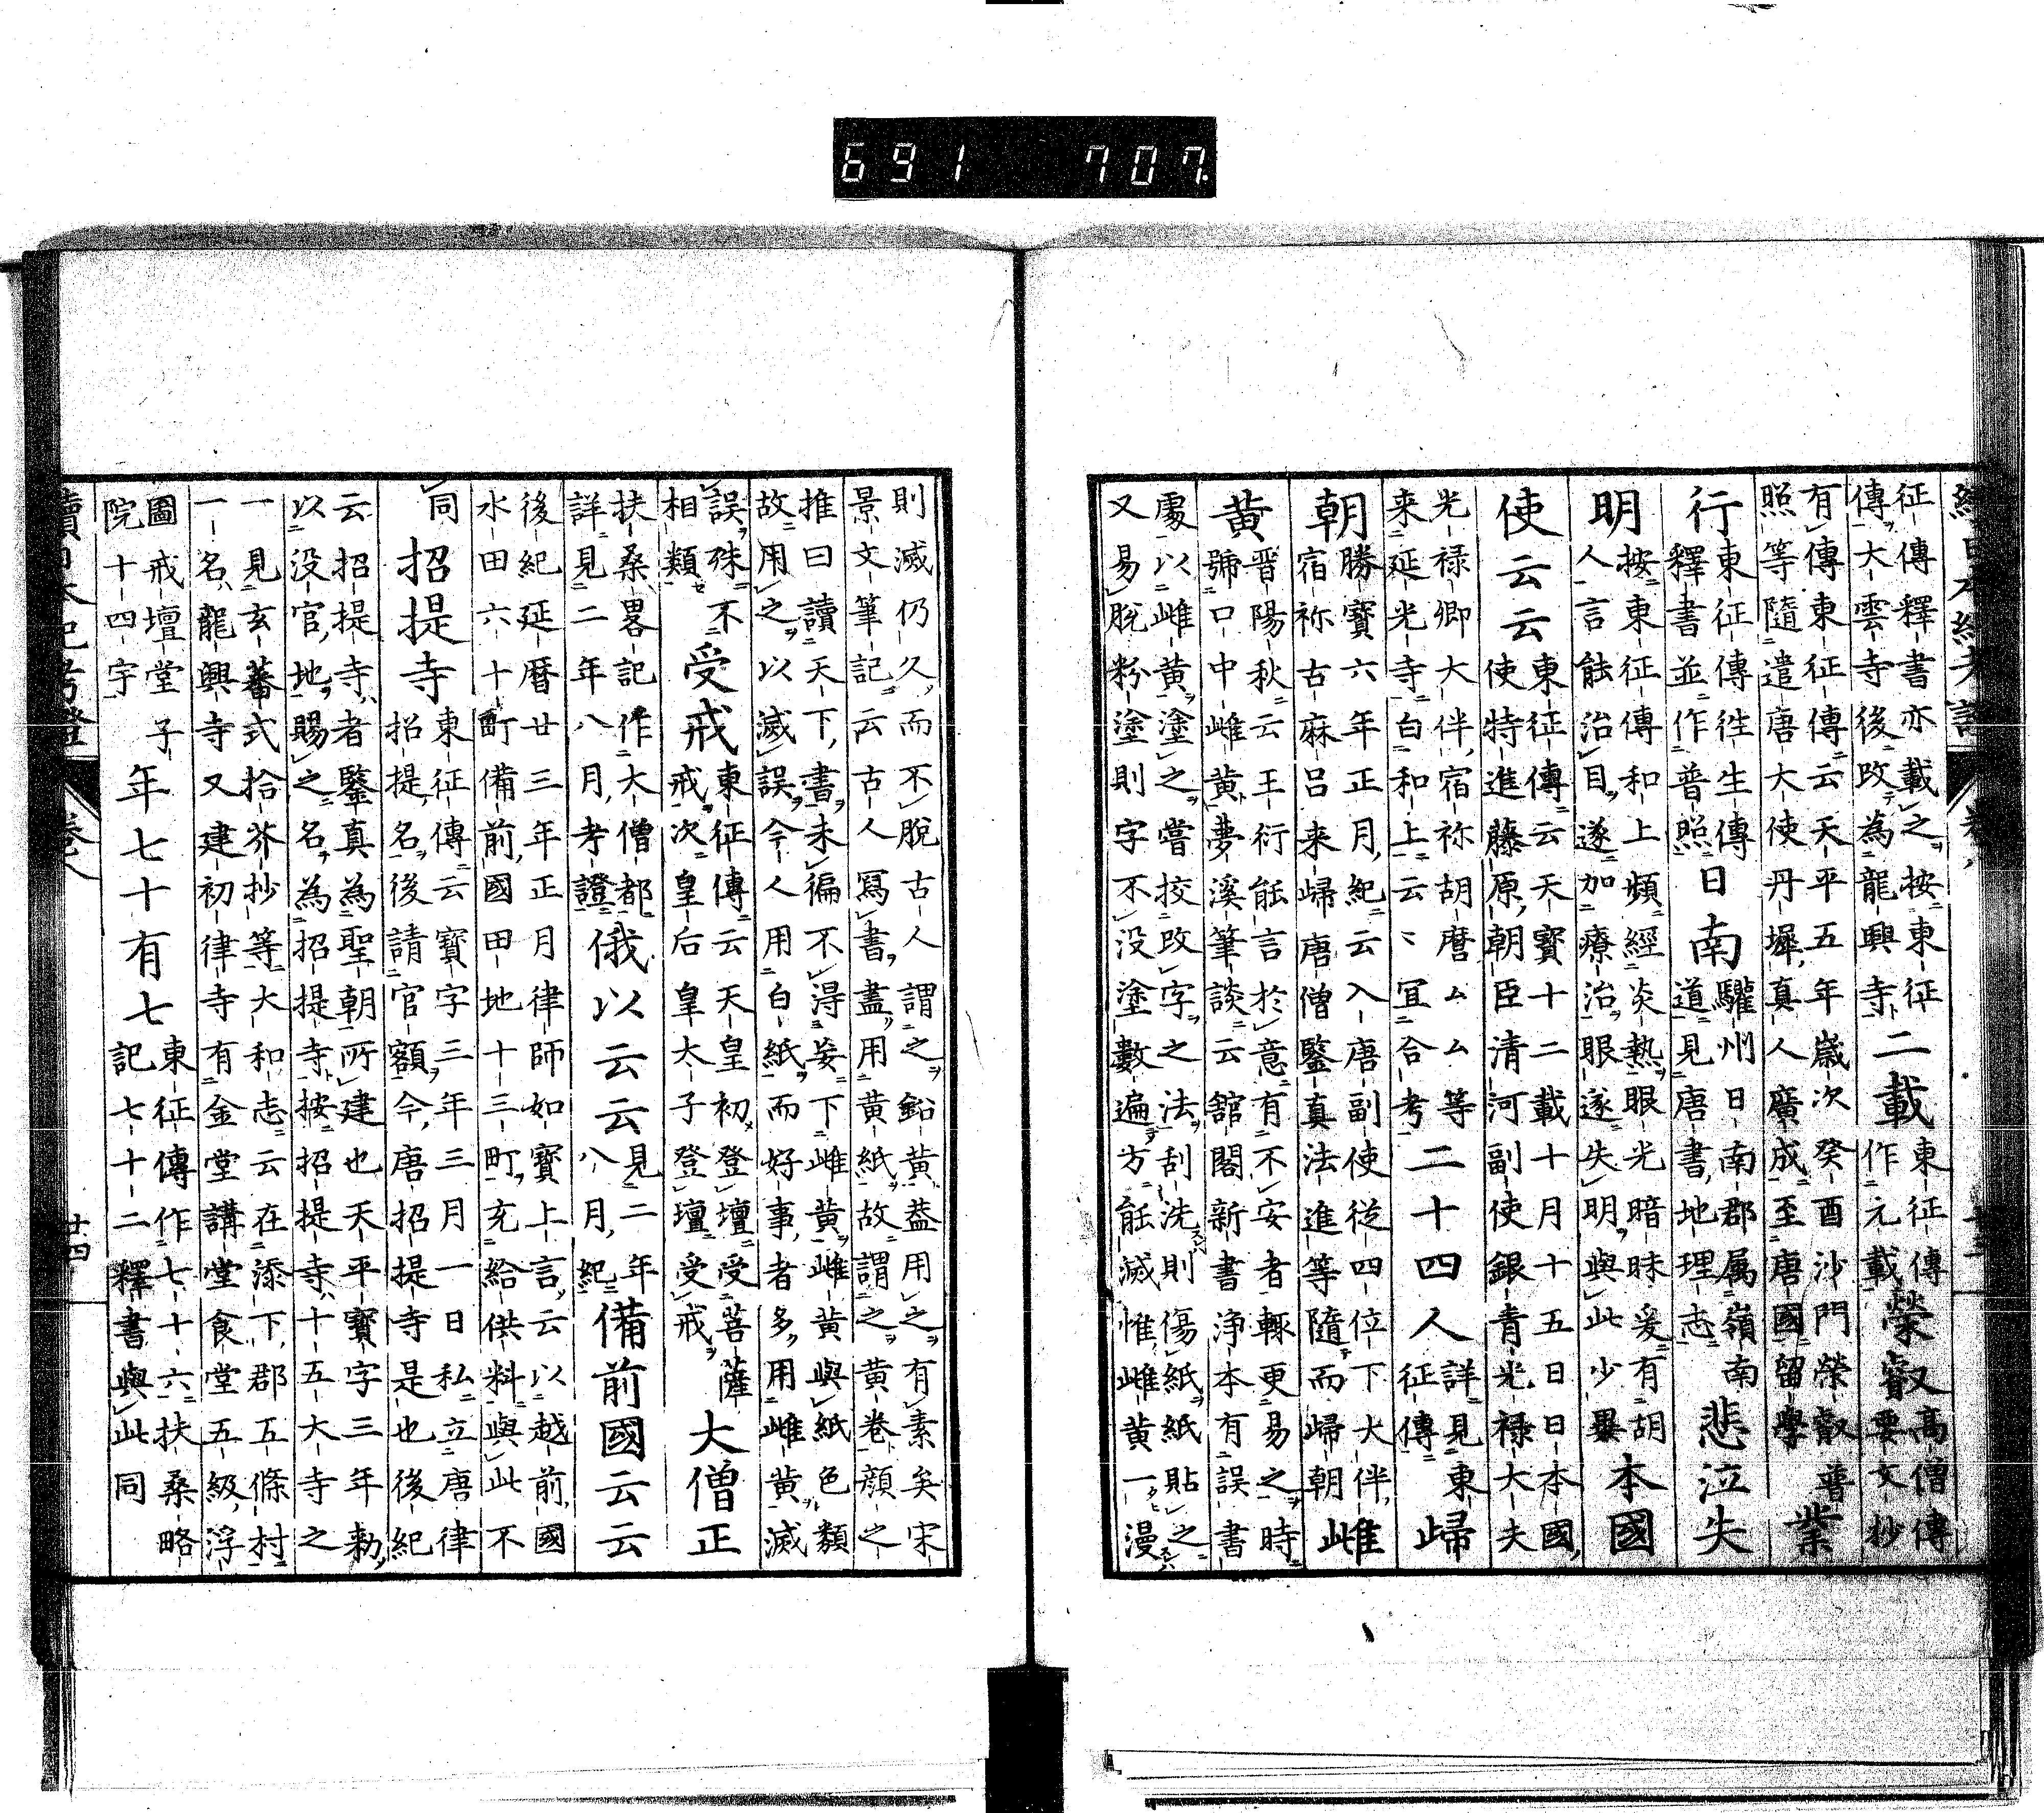 征傳釋書亦載之按東征
傳大雲寺後改為龍興寺
二載
東征傳
作元載
榮睿
又高僧傳
要文抄
有傳東征傳云天平五年歲次癸酉沙門榮叡普
照等隨遣唐大使丹墀真人廣成至唐國留學
業
行
東征傳往生傳
釋書並作普照
日南
驩州日南郡属嶺南
道見唐書地理志
悲泣失
明
按東征傳和上頻經炎熱眼光暗昧爰有胡
人言能治目遂加療治眼遂失明與此少異
本國
使云云
東征傳云天寶十二載十月十五日日本國
使特進藤原朝臣清河副使銀青光禄大夫
光禄卿大伴宿祢胡麿ムム等
来延光寺白和上云〻冝合考
二十四人
詳見東
征傳
歸
朝
勝寶六年正月紀云入唐副使從四位下大伴
宿祢古麻呂来歸唐僧鑒真法進等隨而歸朝
雌
黄
晉陽秋云王衍能言於意有不安者輙更易之時
號口中雌黄夢溪筆談云舘閣新書浄本有誤書
處以雌黄塗之嘗挍改字之法刮洗則傷紙紙貼之
又易脫粉塗則字不没塗數遍方能滅惟雌黄一漫
則滅仍久而不脫古人謂之鉛黄葢用之有素矣宋
景文筆記云古人冩書盡用黄紙故謂之黄巻顔之
推曰讀天下書未徧不淂妄下雌黄雌黄與紙色類
故用之以滅誤今人用白紙而好事者多用雌黄滅
誤殊不
相類
受戒
東征傳云天皇初登壇受菩薩
戒次皇后皇太子登壇受戒
大僧正
扶桑畧記作大僧都
詳見二年八月考證
俄以云云
見二年
八月紀
備前國云云
後紀延暦廿三年正月律師如寶上言云以越前國
水田六十町備前國田地十三町充給供料與此不
同
招提寺
東征傳云寶字三年三月一日私立唐律
招提名後請官額今唐招提寺是也後紀
云招提寺者鑒真為聖朝所建也天平寶字三年勅
以没官地賜之名為招提寺按招提寺十五大寺之
一見玄蕃式拾芥抄等大和志云在添下郡五條村
一名龍興寺又建初律寺有金堂講堂食堂五級浮
圖戒壇堂子
院十四宇
年七十有七
東征傳作七十六扶桑略
記七十二釋書與此同
續日本紀考證 卷八 廿四
691 707.